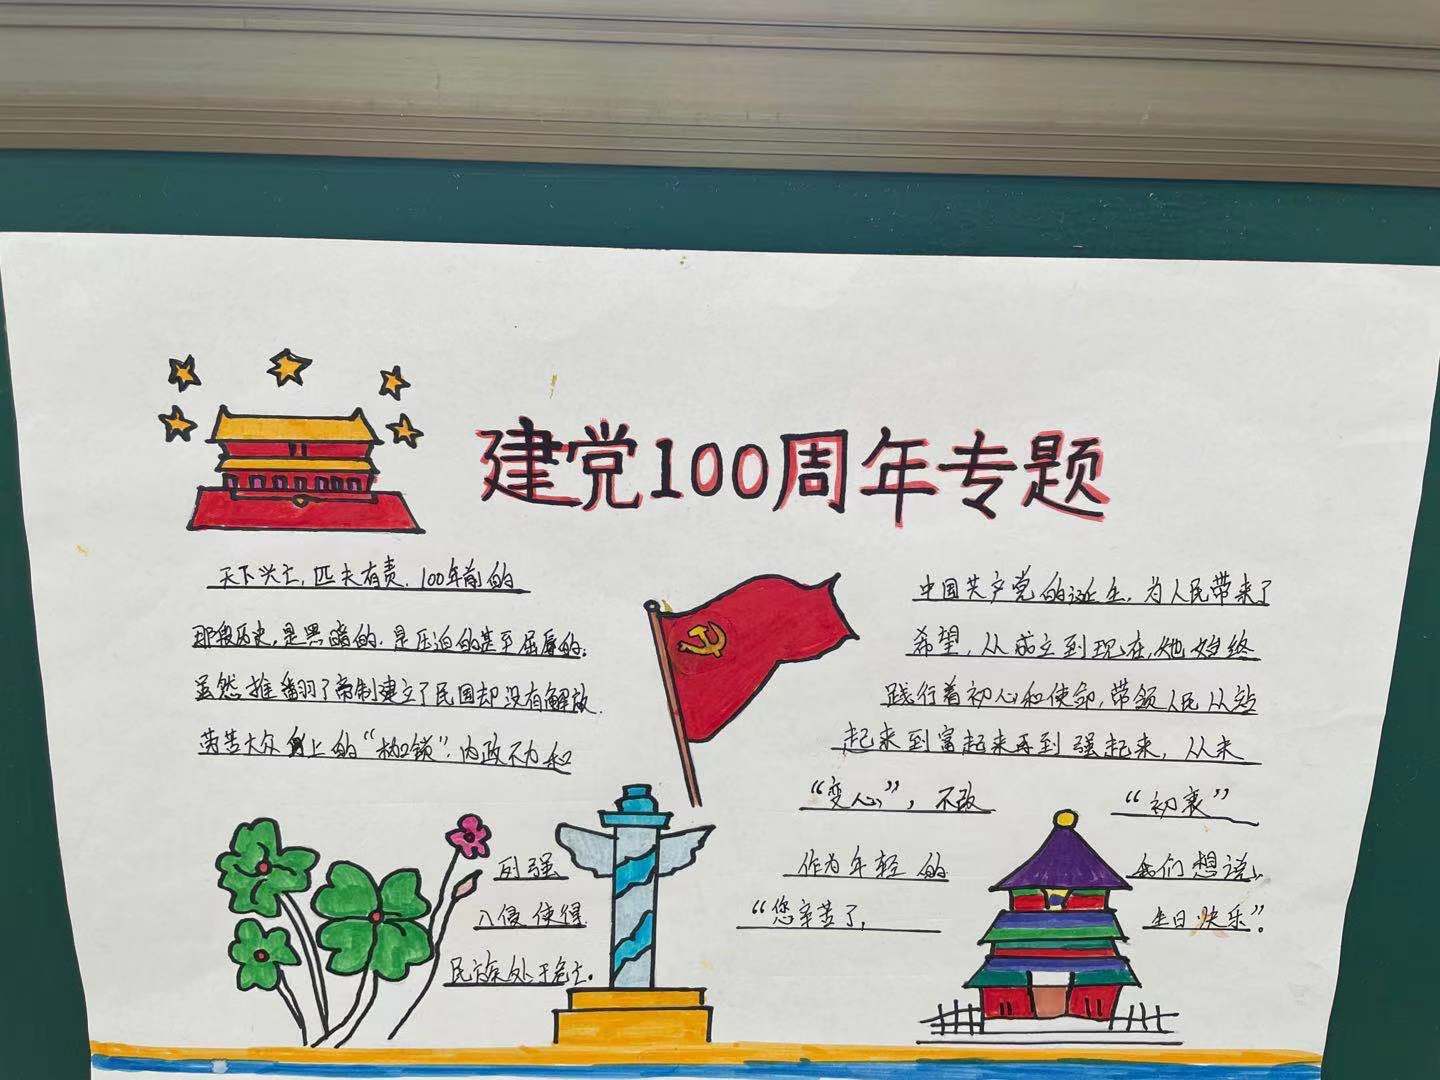 建党100周年专题
天下兴亡,匹夫有责.100年前的
那段历史,是黑暗的.是压迫的甚至屈辱的.
虽然推翻了帝制建立了民国却没有解放.
劳苦大众身上的“枷锁”.内政不力和
列强
入侵使得
民族处于危亡.
中国共产党的诞生,为人民带来了
希望,从成立到现在,她始终
践行着初心和使命,带领人民从站
起来到富起来再到强起来,从未
“变心”,不改 “初衷”
作为年轻的 我们想说,
“您辛苦了, 生日快乐”.